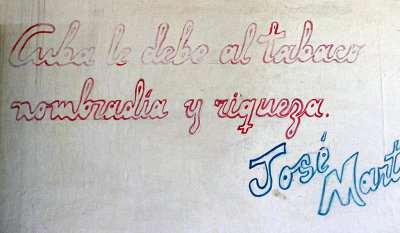 Cuba le debe al tabaco
nombradía y riqueza.
José Mart